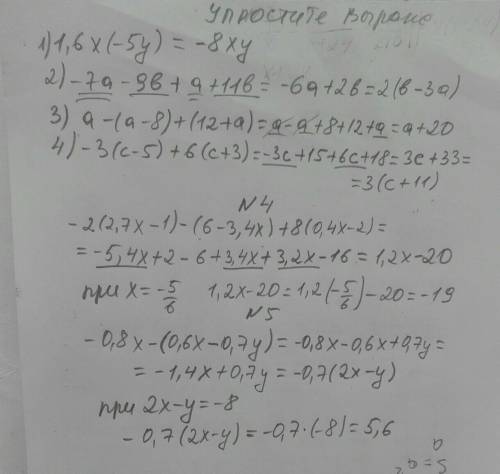 Упростите выраже
1) 1,6x(-5y) = -8xy
2) -7a - 9в + a + 11в = -6a + 2в = 2(в - 3a)
3) a - (a - 8) + (12 + a) = a - a + 8 + 12 + a = a + 20
4) -3(c - 5) + 6(c + 3) = -3c + 15 + 6c + 18 = 3c + 33 =
= 3(c + 11)
N4
-2(2,7x - 1) - (6 - 3,4x) + 8(0,4x - 2) =
= -5,4x + 2 - 6 + 3,4x + 3,2x - 16 = 1,2x - 20
при x = -5/6 1,2x - 20 = 1,2(-5/6) - 20 = -19
N5
-0,8x - (0,6x - 0,7y) = -0,8x - 0,6x + 0,7y =
= -1,4x + 0,7y = -0,7(2x - y)
при 2x - y = -8
-0,7(2x - y) = -0,7·(-8) = 5,6